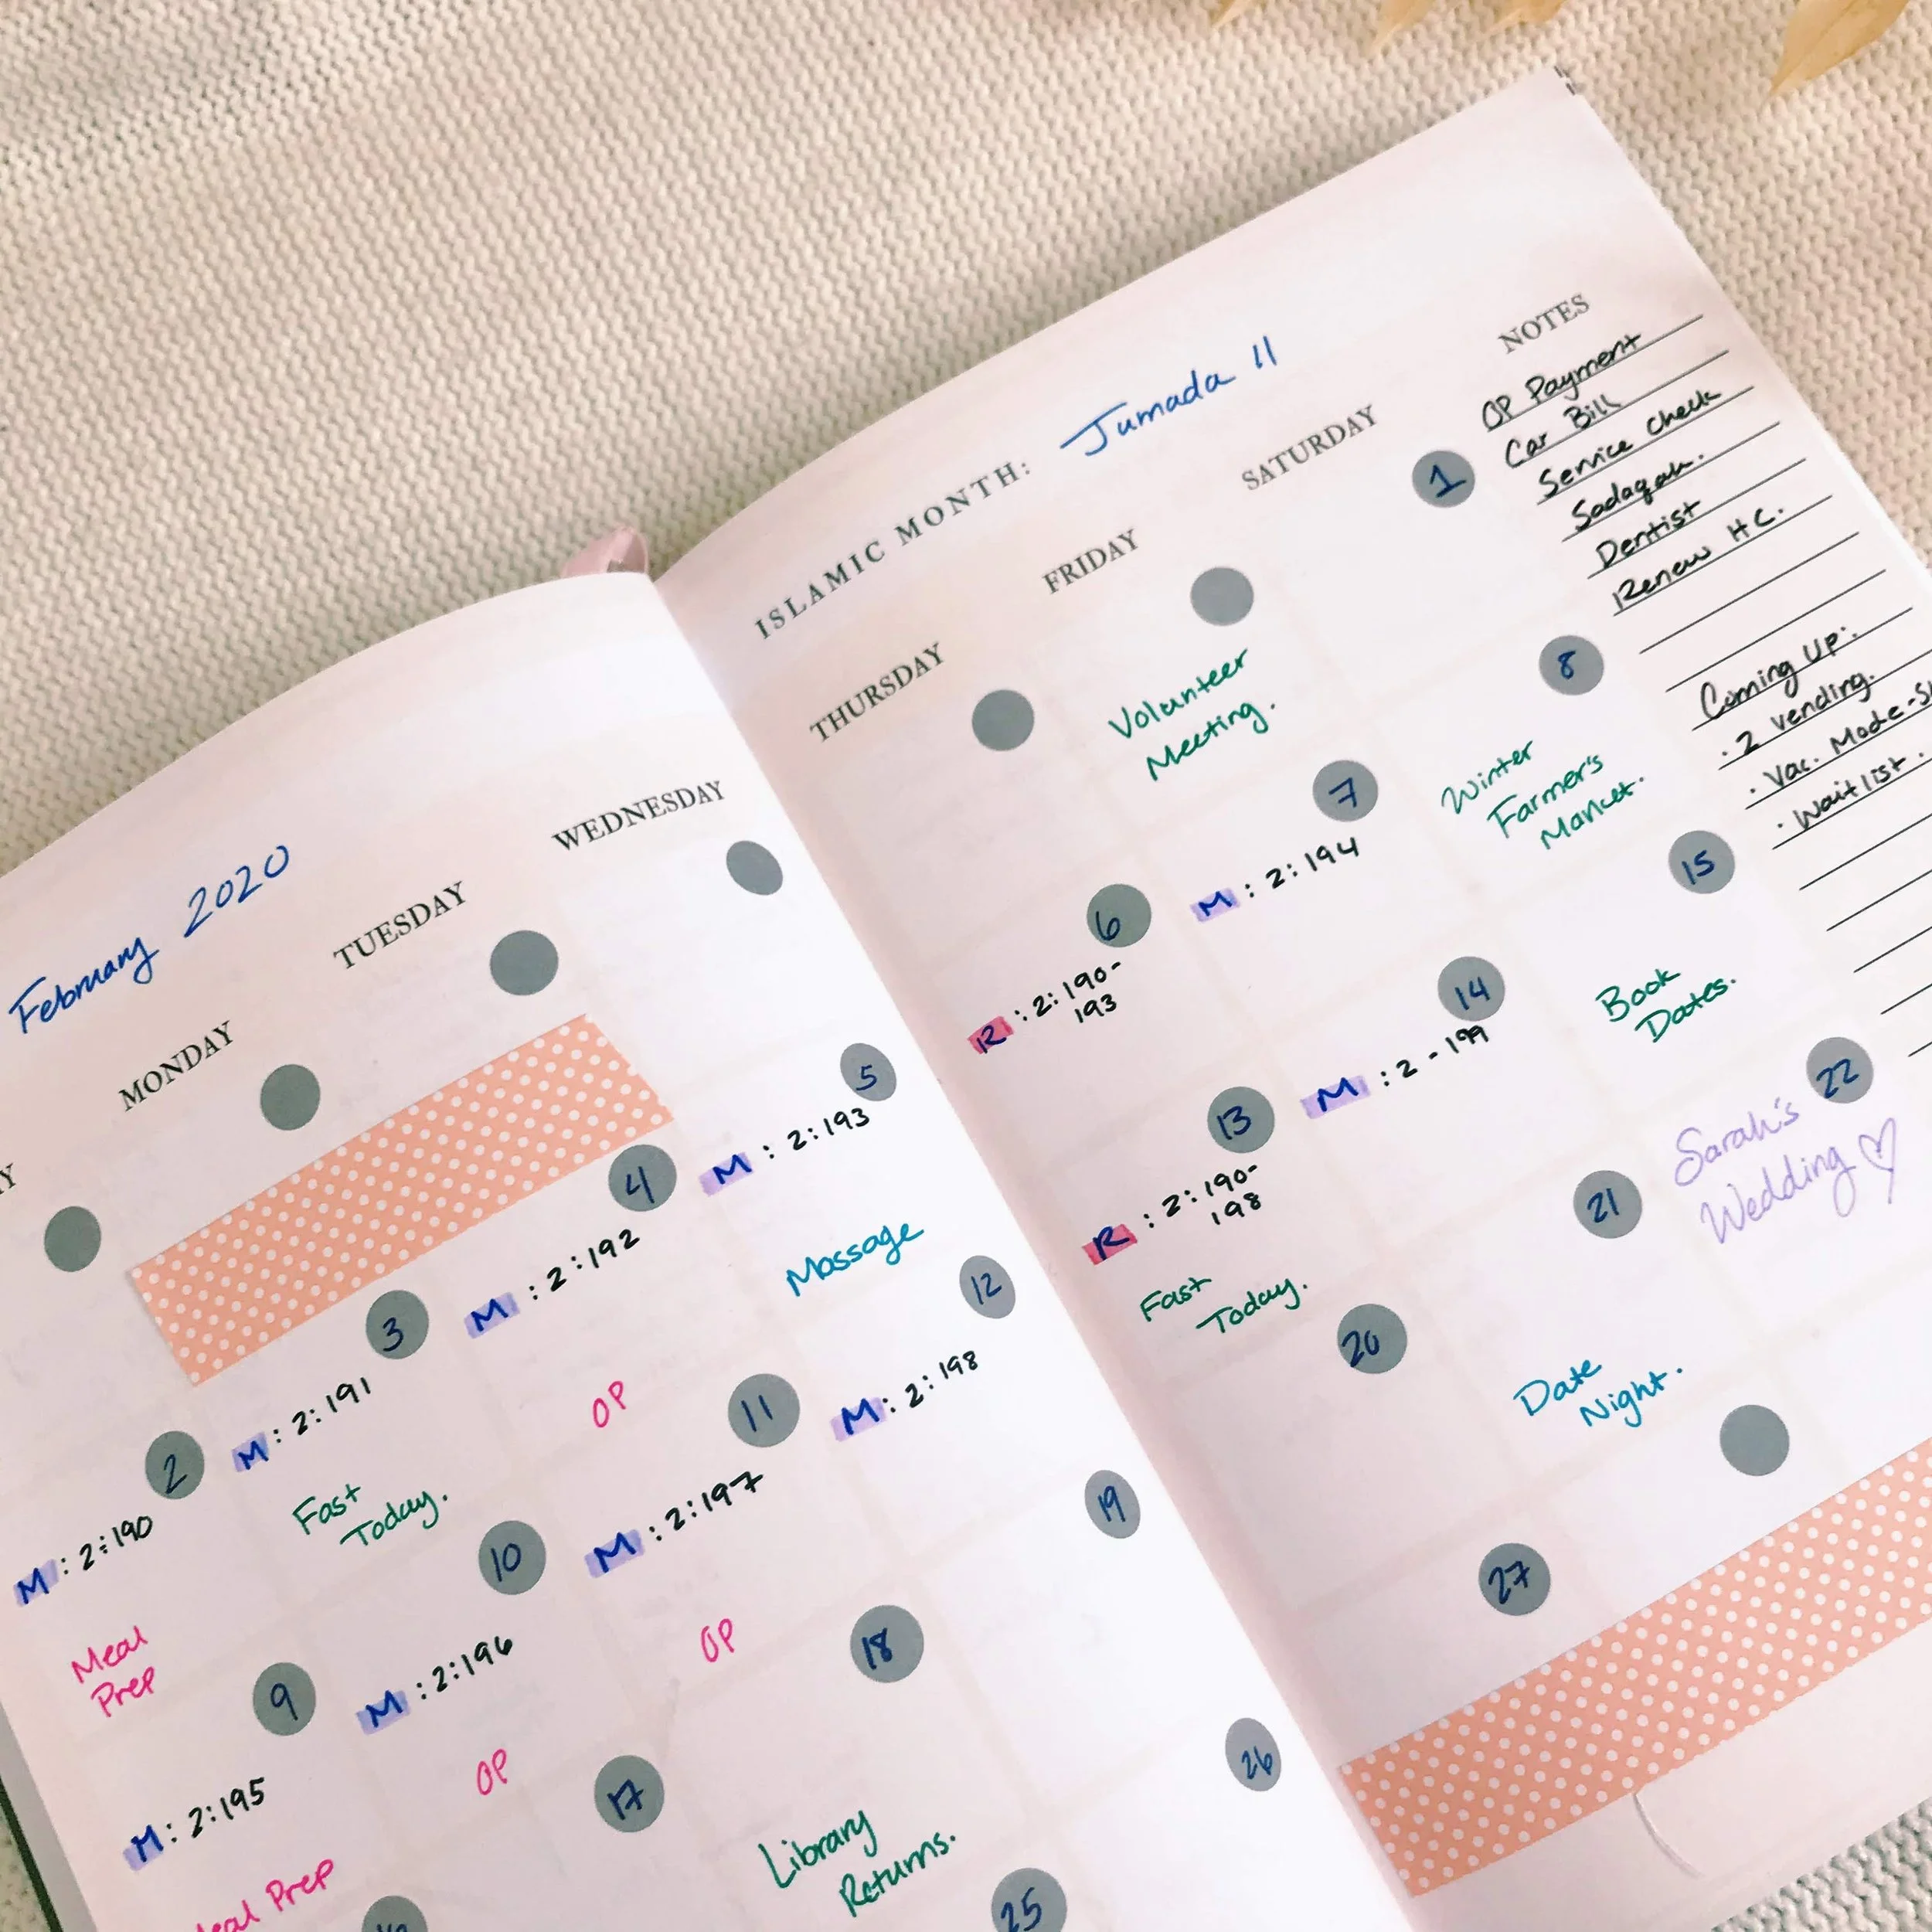 February 2020
MONDAY
TUESDAY
WEDNESDAY
2
M : 2:190
Meal
Prep
3
M : 2:191
Fast
Today.
4
M : 2:192
OP
5
M : 2:193
Massage
9
M : 2:195
Prep
10
M : 2:196
OP
11
M : 2:197
OP
12
M : 2:198
17
18
Library
Returns.
19
25
26
ISLAMIC MONTH: Jumada II
THURSDAY
FRIDAY
SATURDAY
Volunteer
Meeting.
1
6
R : 2:190-
193
7
M : 2:194
8
Winter
Farmer's
Market.
13
R : 2:190-
198
Fast
Today.
14
M : 2-199
15
Book
Dates.
20
21
Date
Night.
22
Sarah's
Wedding ♡
27
NOTES
OP Payment
Car Bill
Service Check
Sadaqah.
Dentist
Renew H C.
Coming Up:
· 2 vending.
· Vac. Mode-
· Waitlist.